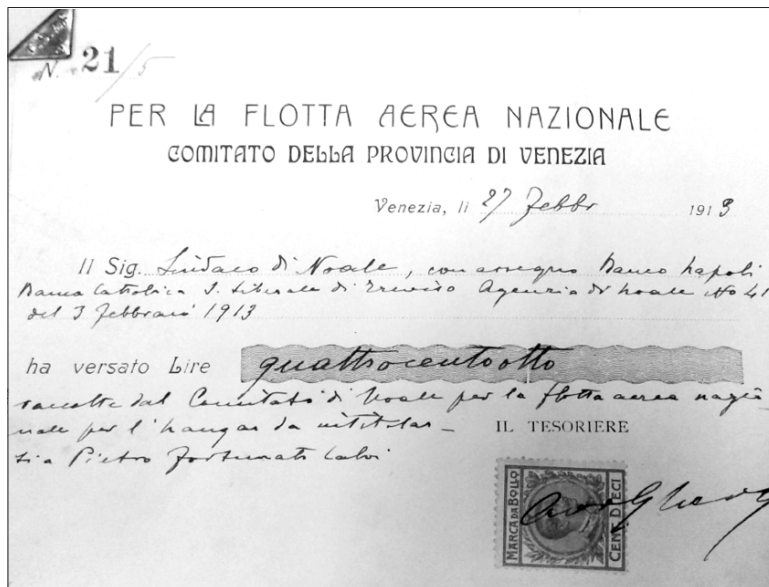 N. 21/5
PER LA FLOTTA AEREA NAZIONALE
COMITATO DELLA PROVINCIA DI VENEZIA
Venezia, li 27 Febbr 1913
Il Sig. Sindaco di Noale, con assegno Banco Napoli
Banca Cattolica S. Liberale di Treviso Agenzia di Noale No 41
del 3 Febbraio 1913
ha versato Lire quattrocentootto
raccolte dal Comitato di Noale per la flotta aerea nazio-
nale per l'hangar da intitolar-
si a Pietro Fortunato Calvi
IL TESORIERE
MARCA DA BOLLO
CENT. DIECI